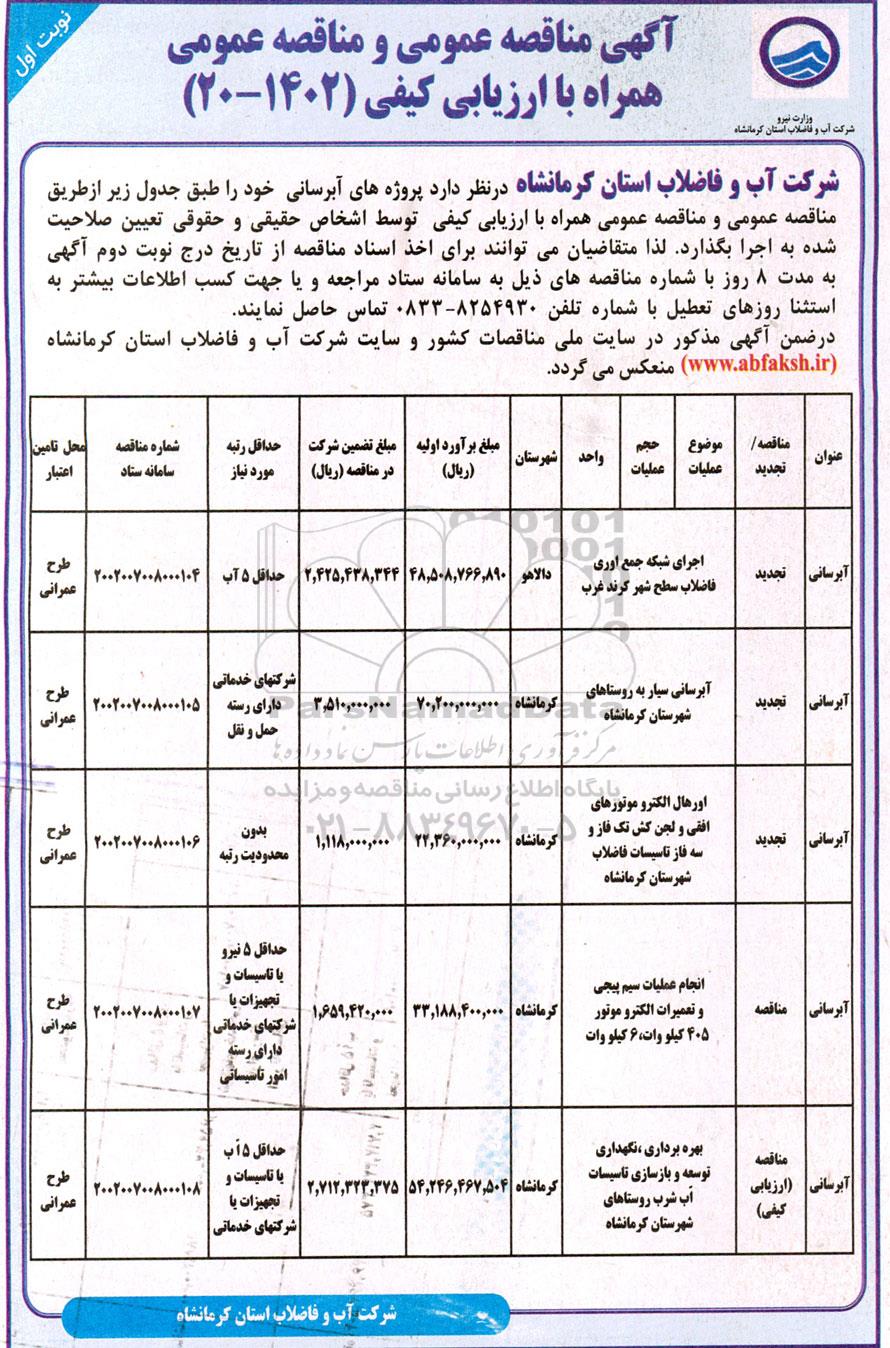 نوبت اول
آگهی مناقصه عمومی و مناقصه عمومی
همراه با ارزیابی کیفی (۱۴۰۲-۲۰)
وزارت نیرو
شرکت آب و فاضلاب استان کرمانشاه
شرکت آب و فاضلاب استان کرمانشاه درنظر دارد پروژه های آبرسانی خود را طبق جدول زیر ازطریق
مناقصه عمومی و مناقصه عمومی همراه با ارزیابی کیفی توسط اشخاص حقیقی و حقوقی تعیین صلاحیت
شده به اجرا بگذارد. لذا متقاضیان می توانند برای اخذ اسناد مناقصه از تاریخ درج نوبت دوم آگهی
به مدت ۸ روز با شماره مناقصه های ذیل به سامانه ستاد مراجعه و یا جهت کسب اطلاعات بیشتر به
استثنا روزهای تعطیل با شماره تلفن ۸۲۵۴۹۳۰-۰۸۳۳ تماس حاصل نمایند.
درضمن آگهی مذکور در سایت ملی مناقصات کشور و سایت شرکت آب و فاضلاب استان کرمانشاه
(www.abfaksh.ir) منعکس می گردد.
عنوان
مناقصه/
تجدید
موضوع
عملیات
حجم
عملیات
واحد
شهرستان
مبلغ برآورد اولیه
(ریال)
مبلغ تضمین شرکت
در مناقصه (ریال)
حداقل رتبه
مورد نیاز
شماره مناقصه
سامانه ستاد
محل تامین
اعتبار
آبرسانی
تجدید
اجرای شبکه جمع آوری
فاضلاب سطح شهر کرند غرب
دالاهو
۴۸,۵۰۸,۷۶۶,۸۹۰
۲,۴۲۵,۴۳۸,۳۴۴
حداقل ۵ آب
۲۰۰۲۰۰۷۰۰۸۰۰۰۱۰۴
طرح
عمرانی
آبرسانی
تجدید
آبرسانی سیار به روستاهای
شهرستان کرمانشاه
کرمانشاه
۷۰,۲۰۰,۰۰۰,۰۰۰
۳,۵۱۰,۰۰۰,۰۰۰
شرکتهای خدماتی
دارای رسته
حمل و نقل
۲۰۰۲۰۰۷۰۰۸۰۰۰۱۰۵
طرح
عمرانی
آبرسانی
تجدید
اورهال الکترو موتورهای
افقی و لجن کش تک فاز و
سه فاز تاسیسات فاضلاب
شهرستان کرمانشاه
کرمانشاه
۲۲,۳۶۰,۰۰۰,۰۰۰
۱,۱۱۸,۰۰۰,۰۰۰
بدون
محدودیت رتبه
۲۰۰۲۰۰۷۰۰۸۰۰۰۱۰۶
طرح
عمرانی
آبرسانی
مناقصه
انجام عملیات سیم پیچی
و تعمیرات الکترو موتور
۴۰۵ کیلو وات،۶ کیلو وات
کرمانشاه
۳۳,۱۸۸,۴۰۰,۰۰۰
۱,۶۵۹,۴۲۰,۰۰۰
حداقل ۵ نیرو
یا تاسیسات و
تجهیزات یا
شرکتهای خدماتی
دارای رسته
امور تاسیساتی
۲۰۰۲۰۰۷۰۰۸۰۰۰۱۰۷
طرح
عمرانی
آبرسانی
مناقصه
(ارزیابی
کیفی)
بهره برداری ،نگهداری
توسعه و بازسازی تاسیسات
آب شرب روستاهای
شهرستان کرمانشاه
کرمانشاه
۵۴,۲۴۶,۴۶۷,۵۰۴
۲,۷۱۲,۳۲۳,۳۷۵
حداقل ۵ آب
یا تاسیسات و
تجهیزات یا
شرکتهای خدماتی
۲۰۰۲۰۰۷۰۰۸۰۰۰۱۰۸
طرح
عمرانی
ParsNamadData
مرکز فرآوری اطلاعات پارس نماد داده ها
پایگاه اطلاع رسانی مناقصه و مزایده
۰۲۱-۸۸۳۴۹۶۷۰-۵
شرکت آب و فاضلاب استان کرمانشاه